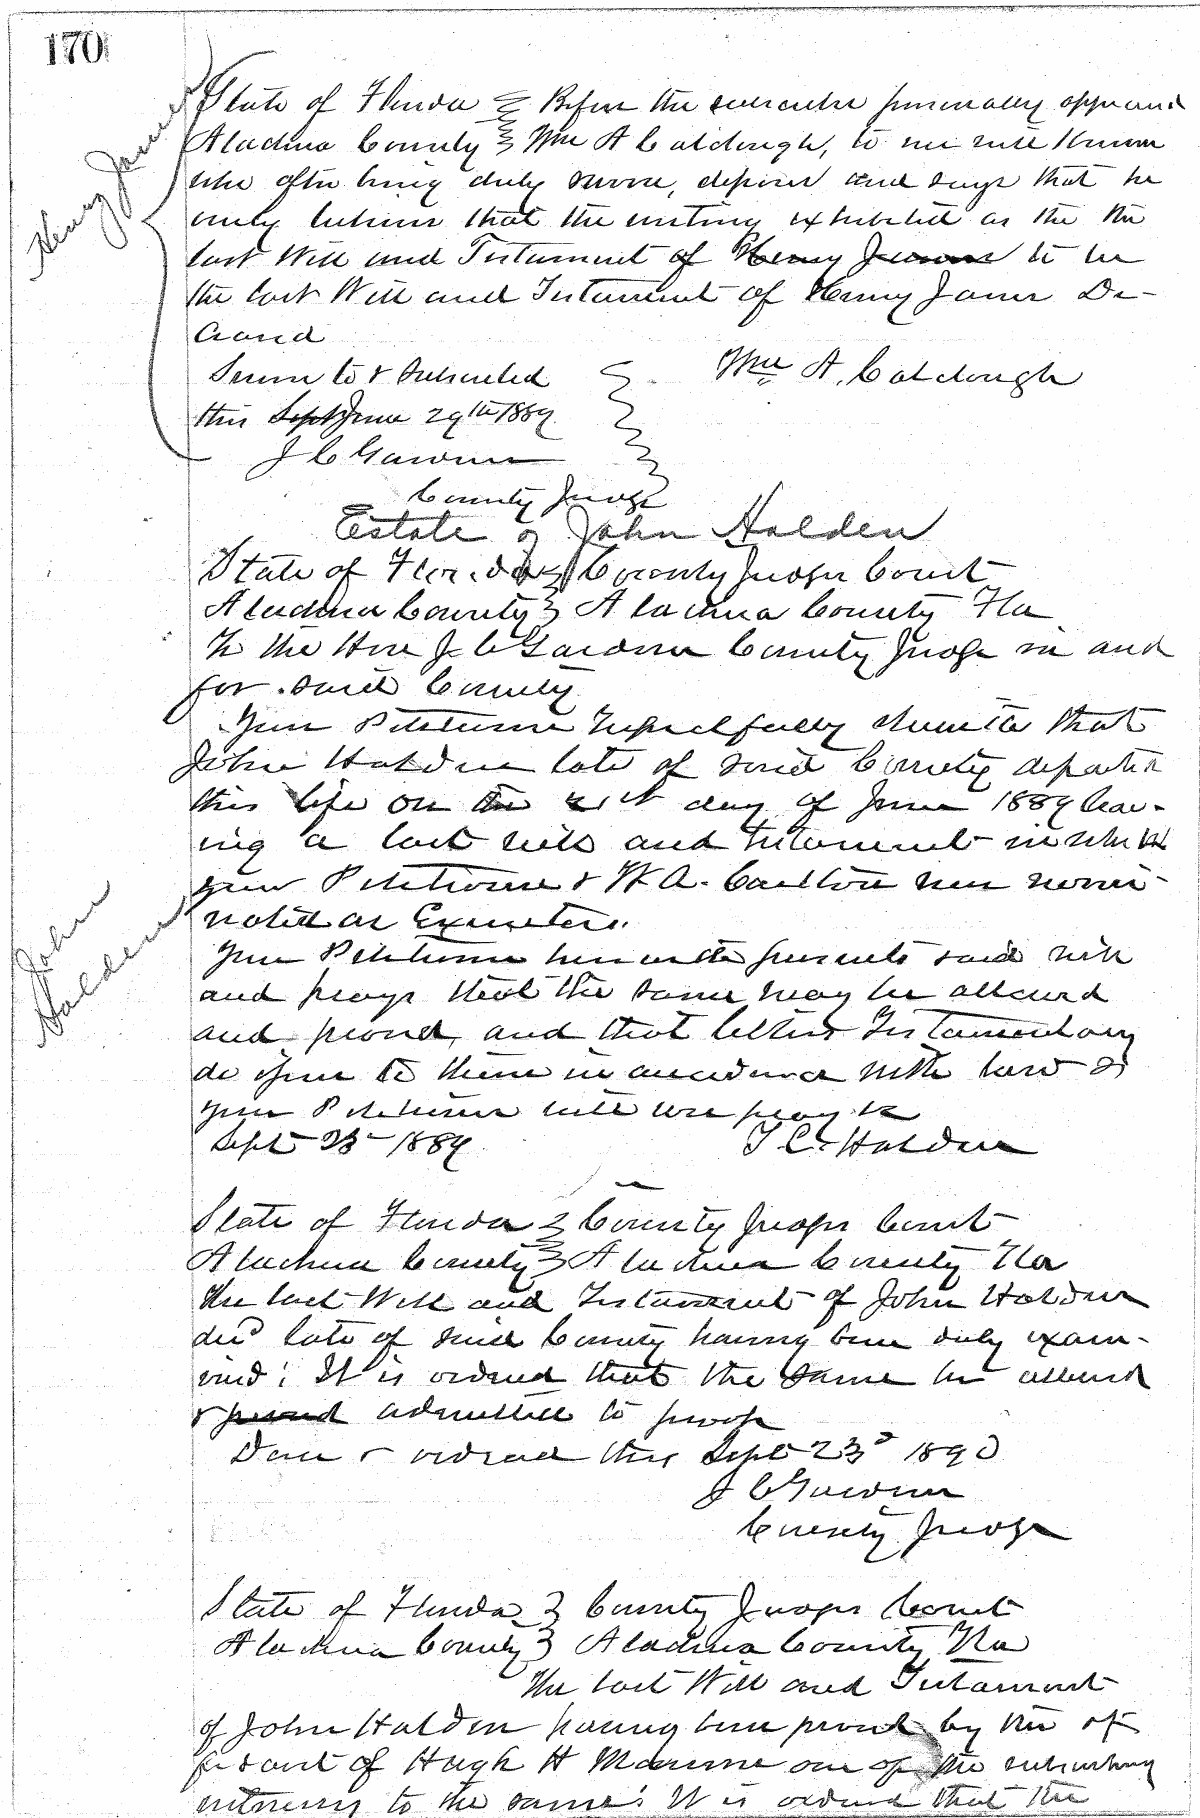 170
Henry James
State of Florida } Before the subscriber personally appeared
Alachua County } Wm A Coldough, to me well known
who after being duly sworn, deposes and says that he
verily believes that the writing exhibited as the
last Will and Testament of Henry James to be
the last Will and Testament of Henry James De-
ceased
Sworn to & subscribed
Wm A. Coldough
this Sept June 29th 1889
J C Gardner
County Judge
Estate of John Holden
State of Florida } County Judges Court
Alachua County } Alachua County Fla
To the Hon J C Gardner County Judge in and
for said County
Your Petitioner respectfully that
John Holden late of said County departed
this life on the 21st day of June 1889 leav-
ing a last will and testament in which
your Petitioner & W. A. Carlton were nomi-
nated as Executors.
John Holden
Your Petitioner herewith presents said will
and prays that the same may be allowed
and proved, and that letters Testamentary
be given to them in accordance with law &
your Petitioner will ever pray &c
Sept 23 1889
T C. Holden
State of Florida } County Judges Court
Alachua County } Alachua County Fla
The last Will and Testament of John Holden
decd late of said County having been duly exam-
ined; It is ordered that the same be allowed
& proved admitted to proof
Done & ordered this Sept 23d 1890
J C Gardner
County Judge
State of Florida } County Judges Court
Alachua County } Alachua County Fla
The last Will and Testament
of John Holden having been proved by the af-
fidavit of Hugh H one of the subscribing
witnesses to the same; It is ordered that the